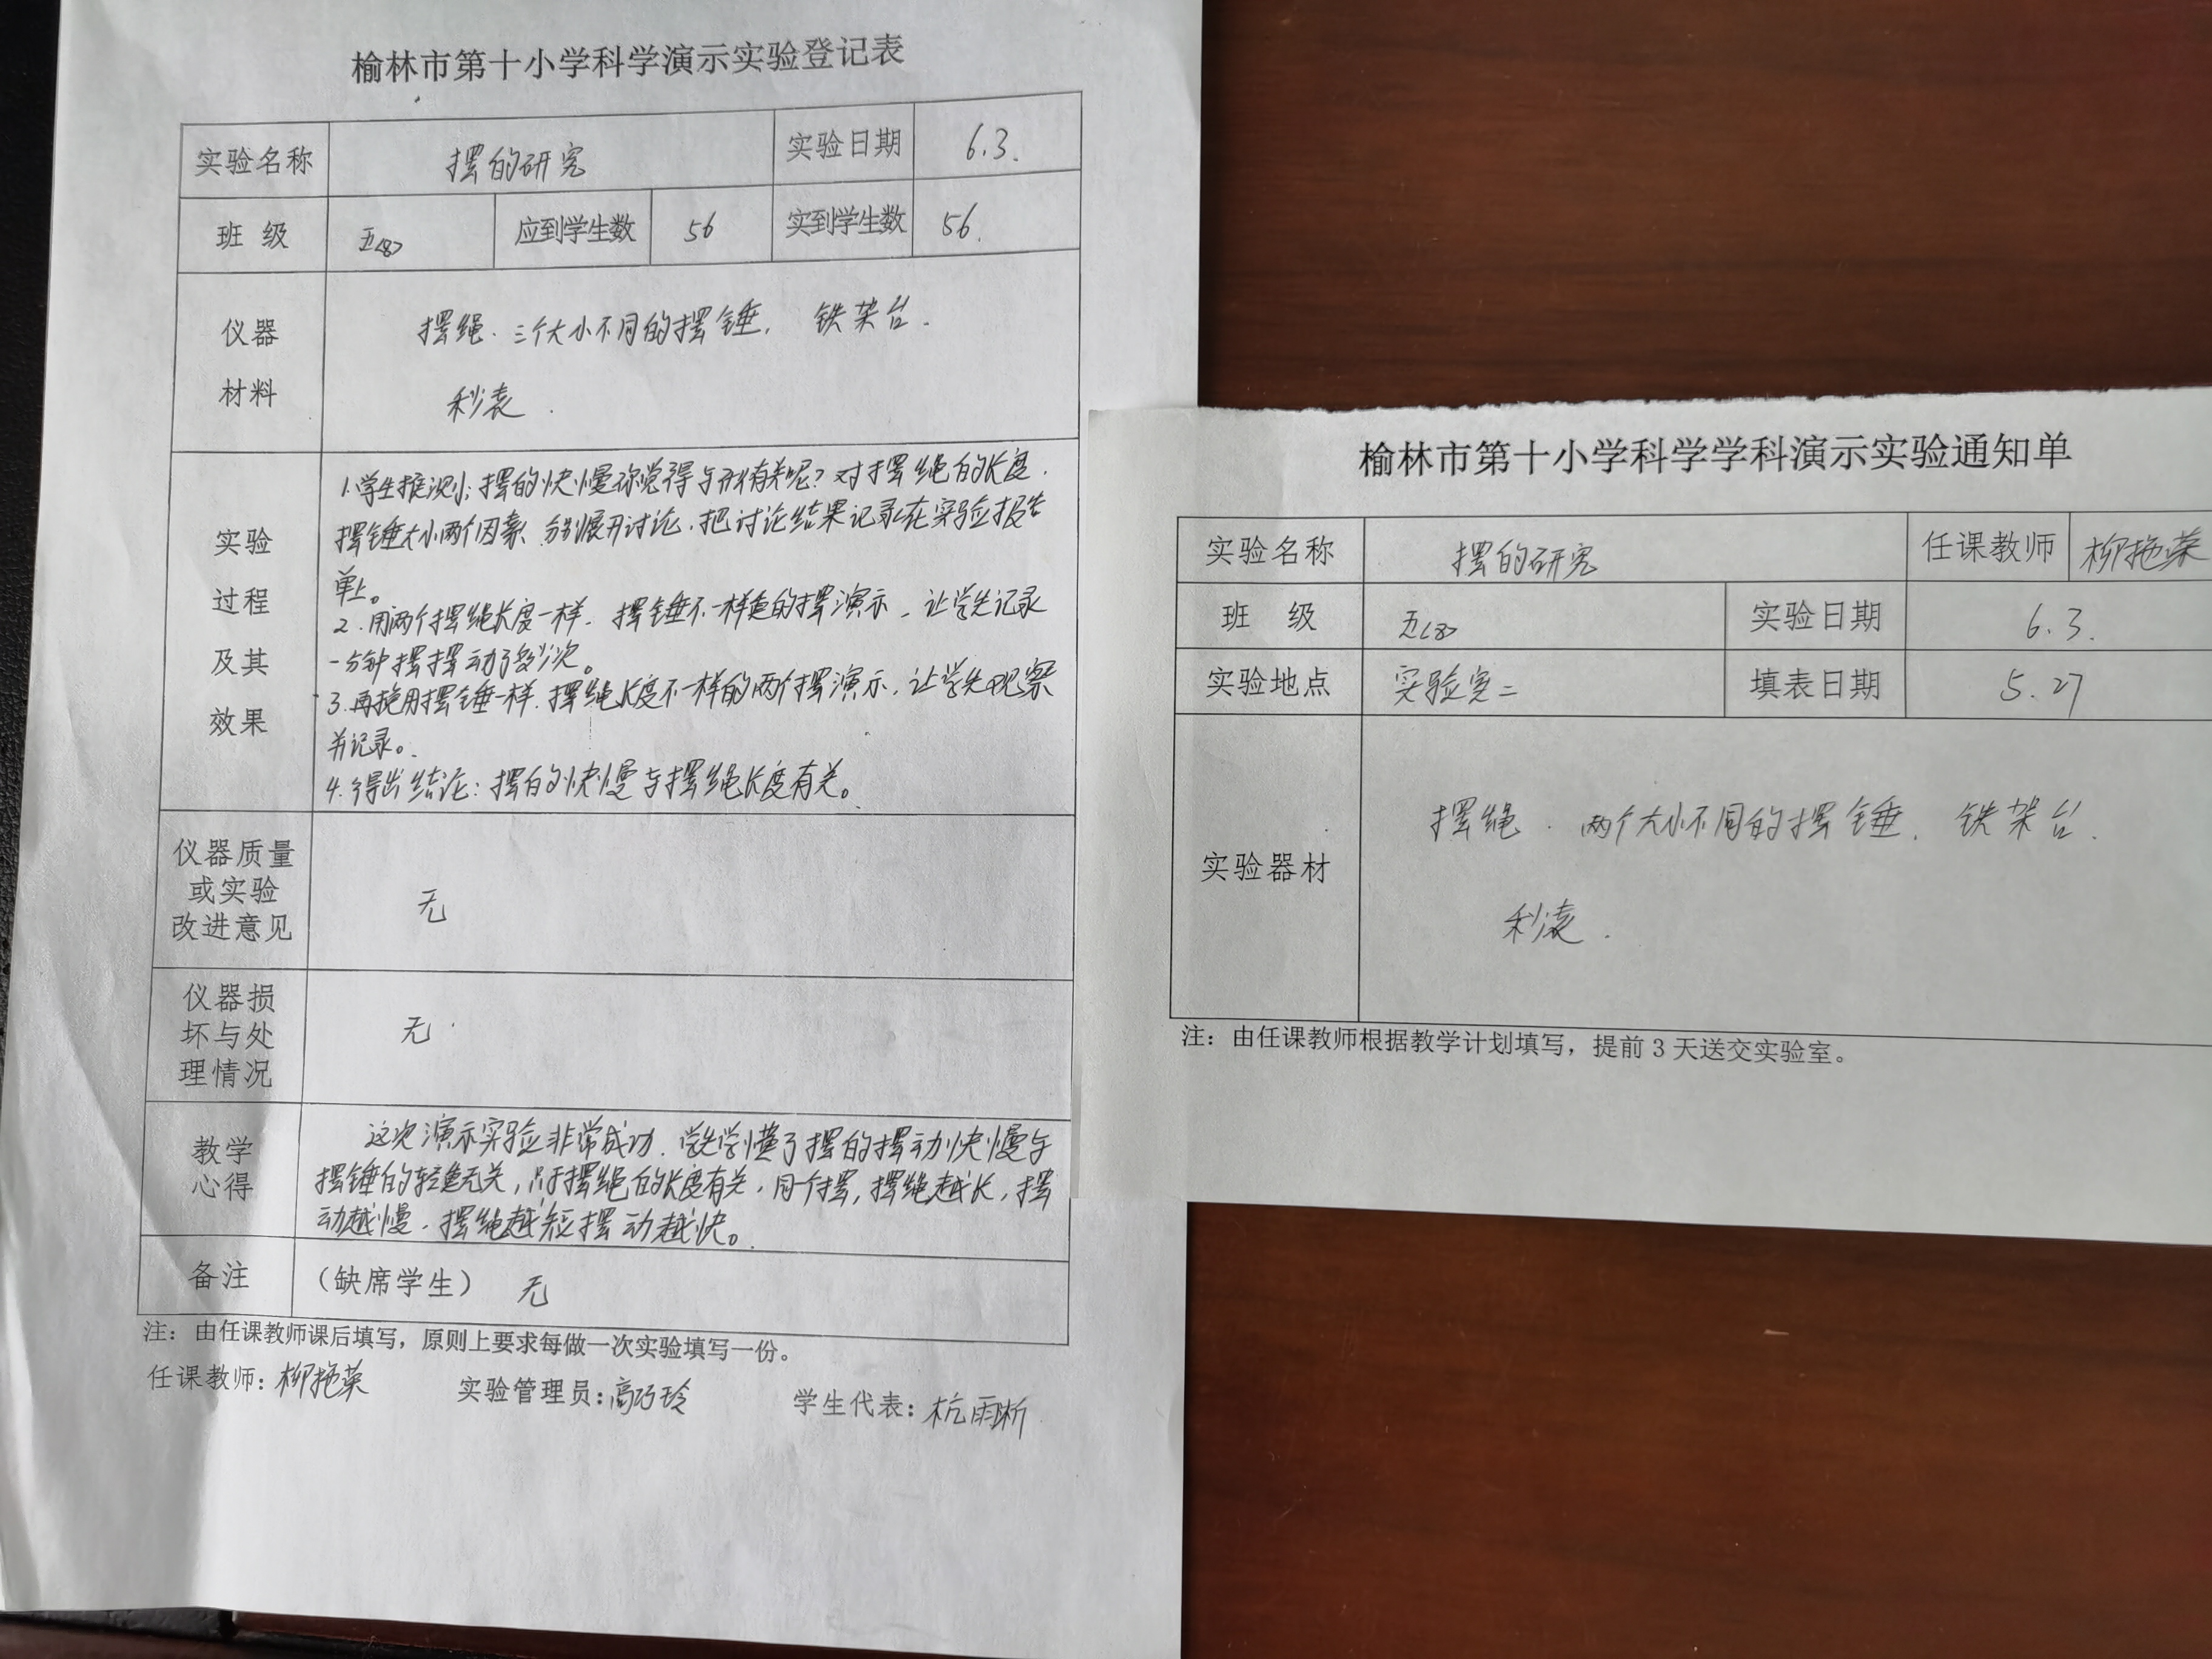 榆林市第十小学科学演示实验登记表
实验名称 摆的研究 实验日期 6.3.
班 级 五<8> 应到学生数 56 实到学生数 56.
仪器
材料
摆绳. 三个大小不同的摆锤. 铁架台.
秒表.
实验
过程
及其
效果
1.学生推测小摆的快慢你觉得与 有关呢?对摆绳的长度.
摆锤大小两个因素 分别展开讨论.把讨论结果记录在实验报告
单上。
2.用两个摆绳长度一样. 摆锤不一样 的摆演示,让学生记录
一分钟摆摆动了多少次。
3.再换用摆锤一样.摆绳长度不一样的两个摆演示,让学生观察
并记录。
4.得出结论:摆的快慢与摆绳长度有关。
仪器质量
或实验
改进意见
无
仪器损
坏与处
理情况
无.
教学
心得
这次演示实验非常成功.学生学懂了摆的摆动快慢与
摆锤的轻重无关,只与摆绳的长度有关.同一个摆,摆绳越长,摆
动越慢.摆绳越短摆动越快。
备注 (缺席学生) 无
注:由任课教师课后填写,原则上要求每做一次实验填写一份。
任课教师:柳艳荣 实验管理员:高巧玲 学生代表:杭雨晰
榆林市第十小学科学学科演示实验通知单
实验名称 摆的研究 任课教师 柳艳荣
班 级 五<8> 实验日期 6.3.
实验地点 实验室二 填表日期 5.27
实验器材
摆绳. 两个大小不同的摆锤. 铁架台.
秒表.
注:由任课教师根据教学计划填写,提前 3 天送交实验室。